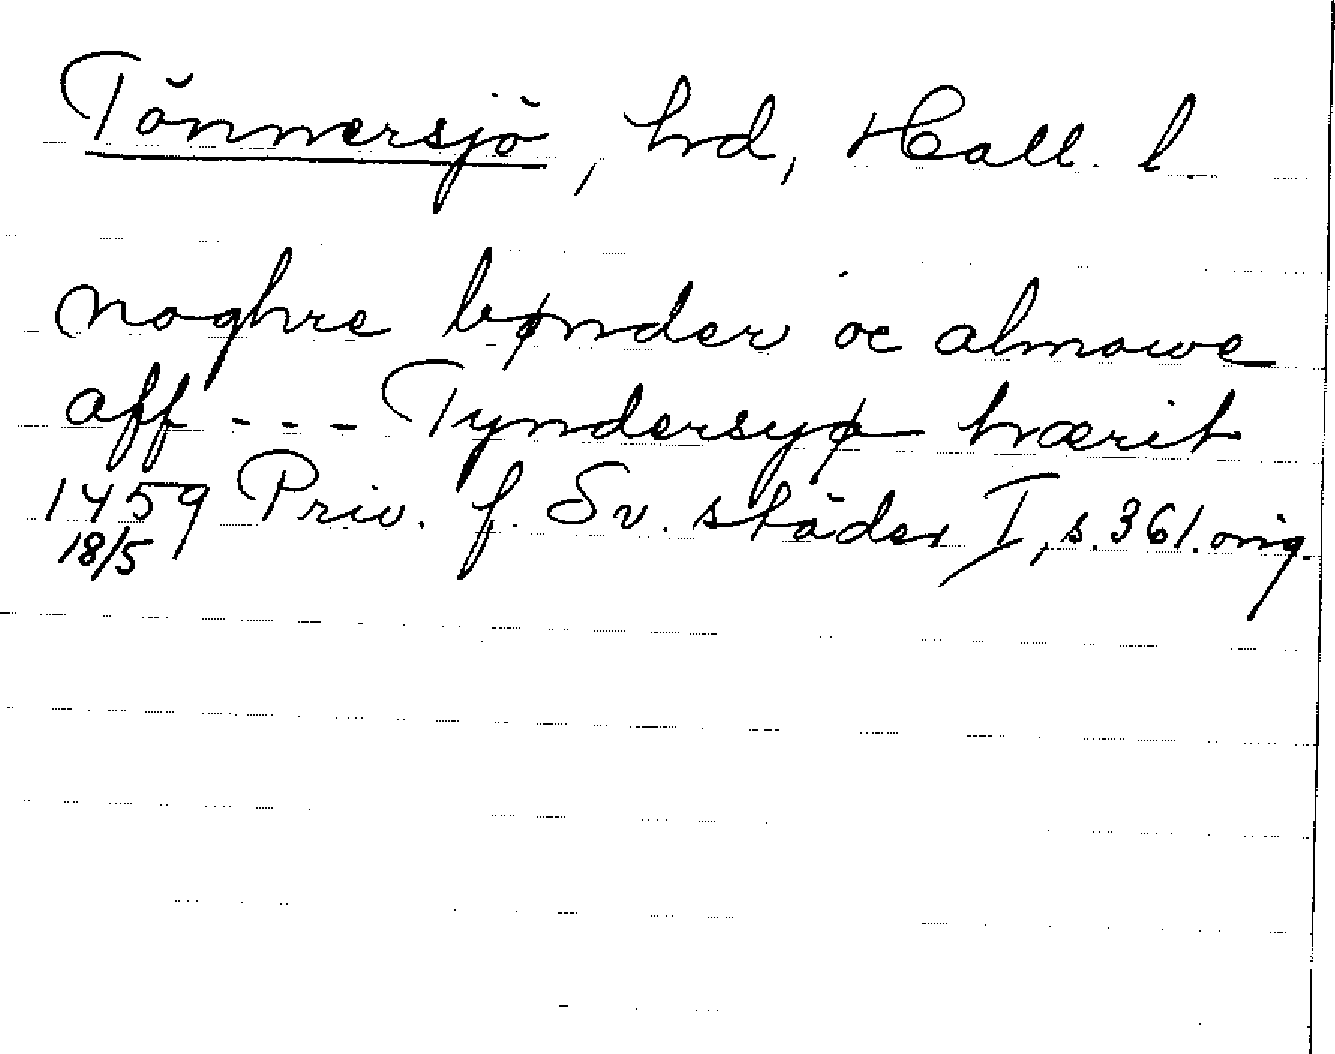 Tönnersjö, hrd, Hall. l.
noghre bønder oc almowe
aff --- Tyndersyø hærit
1459 Priv. f. Sv. städer I, s. 361. orig.
18/5